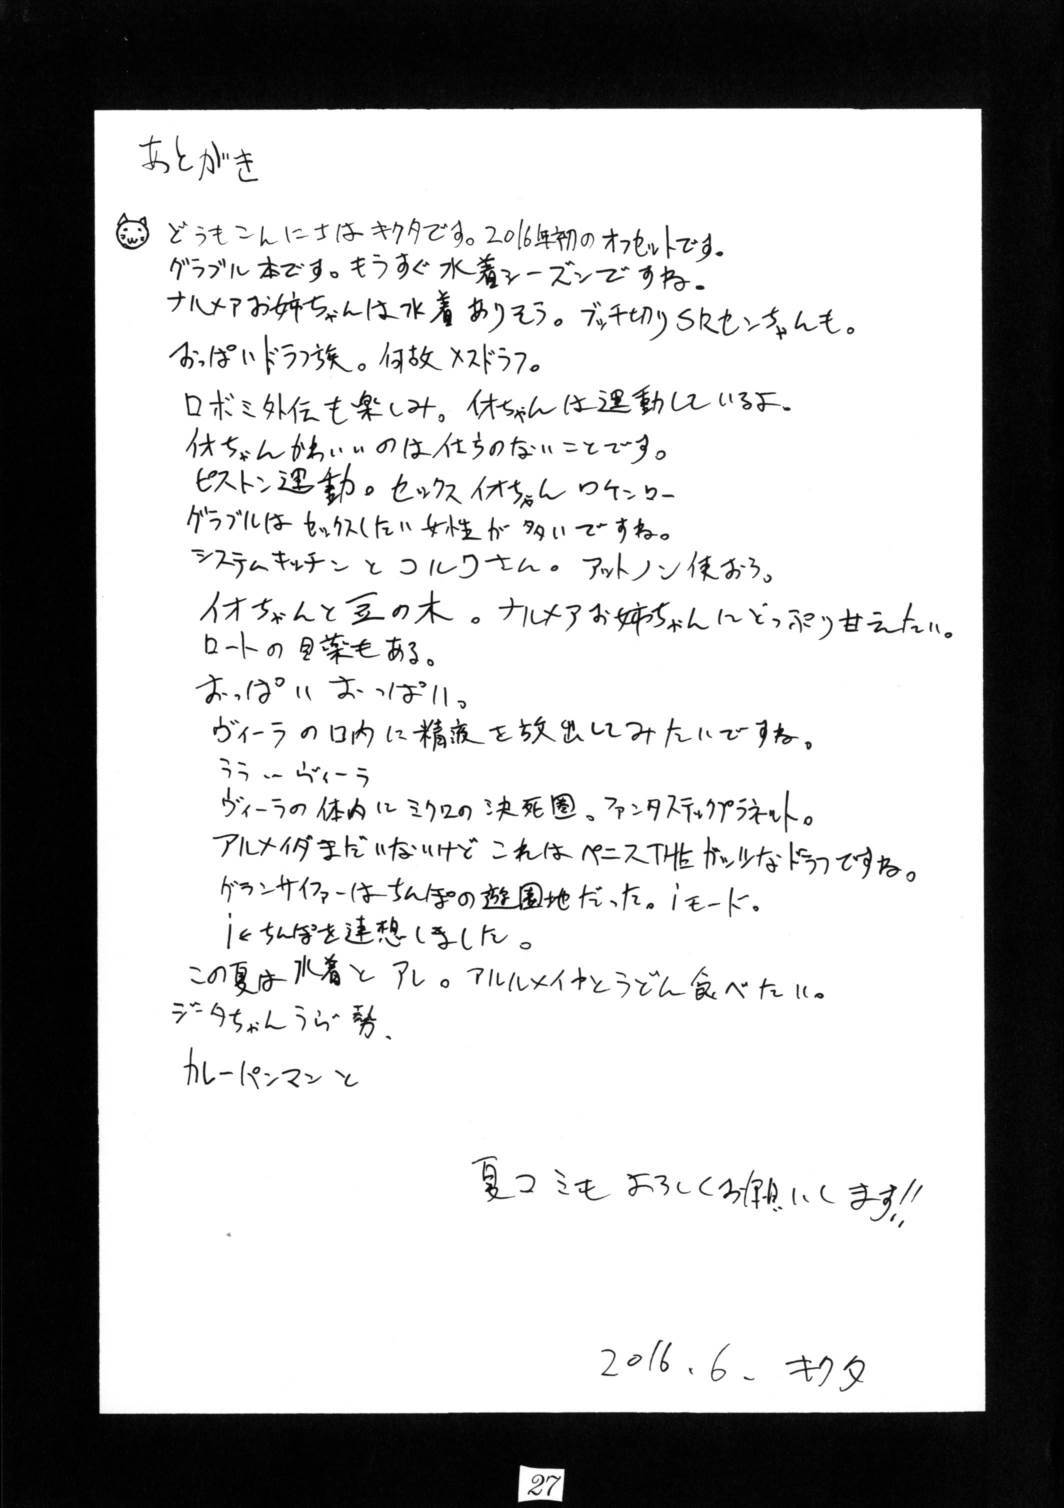 あとがき
どうもこんにちはキクタです。2016年初のオフセットです。
グラブル本です。もうすぐ水着シーズンですね。
ナルメアお姉ちゃんは水着ありそう。ブッチ切りSRセンちゃんも。
おっぱいドラフ族。何故メスドラフ。
グラブルはセックスしたい女性が多いですね。
システムキッチンとコルワさん。アットノン使おう。
イオちゃんと豆の木。ナルメアお姉ちゃんにどっぷり甘えたい。
ロートの目薬もある。
おっぱい おっぱい。
ヴィーラの口内に精液を放出してみたいですね。
うう…ヴィーラ
ヴィーラの体内にミクロの決死圏。ファンタスティックプラネット。
アルメイダまだいないけどこれはペニスTHEガッツなドラフですね。
グランサイファーはちんぽの遊園地だった。iモード。
i←ちんぽを連想しました。
この夏は水着とアレ。アルルメイヤとうどん食べたい。
ジータちゃん 勢、
カレーパンマンと
夏コミもよろしくお願いします!!
2016.6. キクタ
27